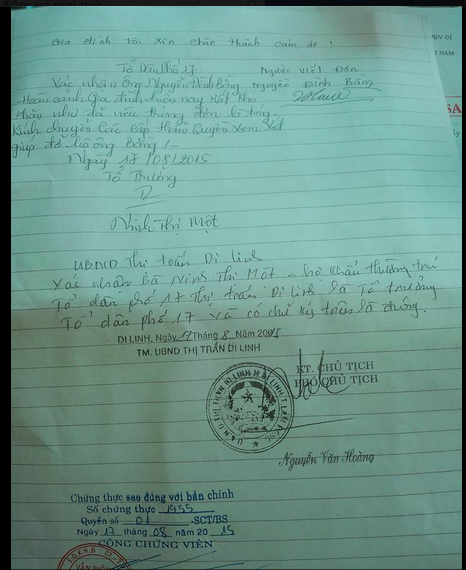 Gia đình tôi xin chân thành cảm ơn !
Tổ Dân Phố 17
Người viết Đơn
Xác nhận ông Nguyễn Đình Bằng
Nguyễn Đình Bằng
Hoàn cảnh Gia đình hiện nay Rất khó
khăn như đã nêu trong đơn là đúng.
Kính chuyển Các cấp thẩm Quyền xem xét
giúp đỡ hộ ông Bằng /-
Ngày 17/08/2015
Tổ Trưởng
Ninh Thị Một
UBND Thị trấn Di Linh
Xác nhận Bà Ninh Thị Một - hộ khẩu thường trú
Tổ dân phố 17 Thị trấn Di Linh là Tổ trưởng
Tổ dân phố 17 và có chữ ký trên là đúng.
DI LINH, Ngày 17 Tháng 8 Năm 2015
TM. UBND THỊ TRẤN DI LINH
KT. CHỦ TỊCH
PHÓ CHỦ TỊCH
Nguyễn Văn Hoàng
Chứng thực sao đúng với bản chính
Số chứng thực 1955
Quyển số 01 -SCT/BS
Ngày 17 tháng 08 năm 20 15
CÔNG CHỨNG VIÊN
VĂN PHÒNG